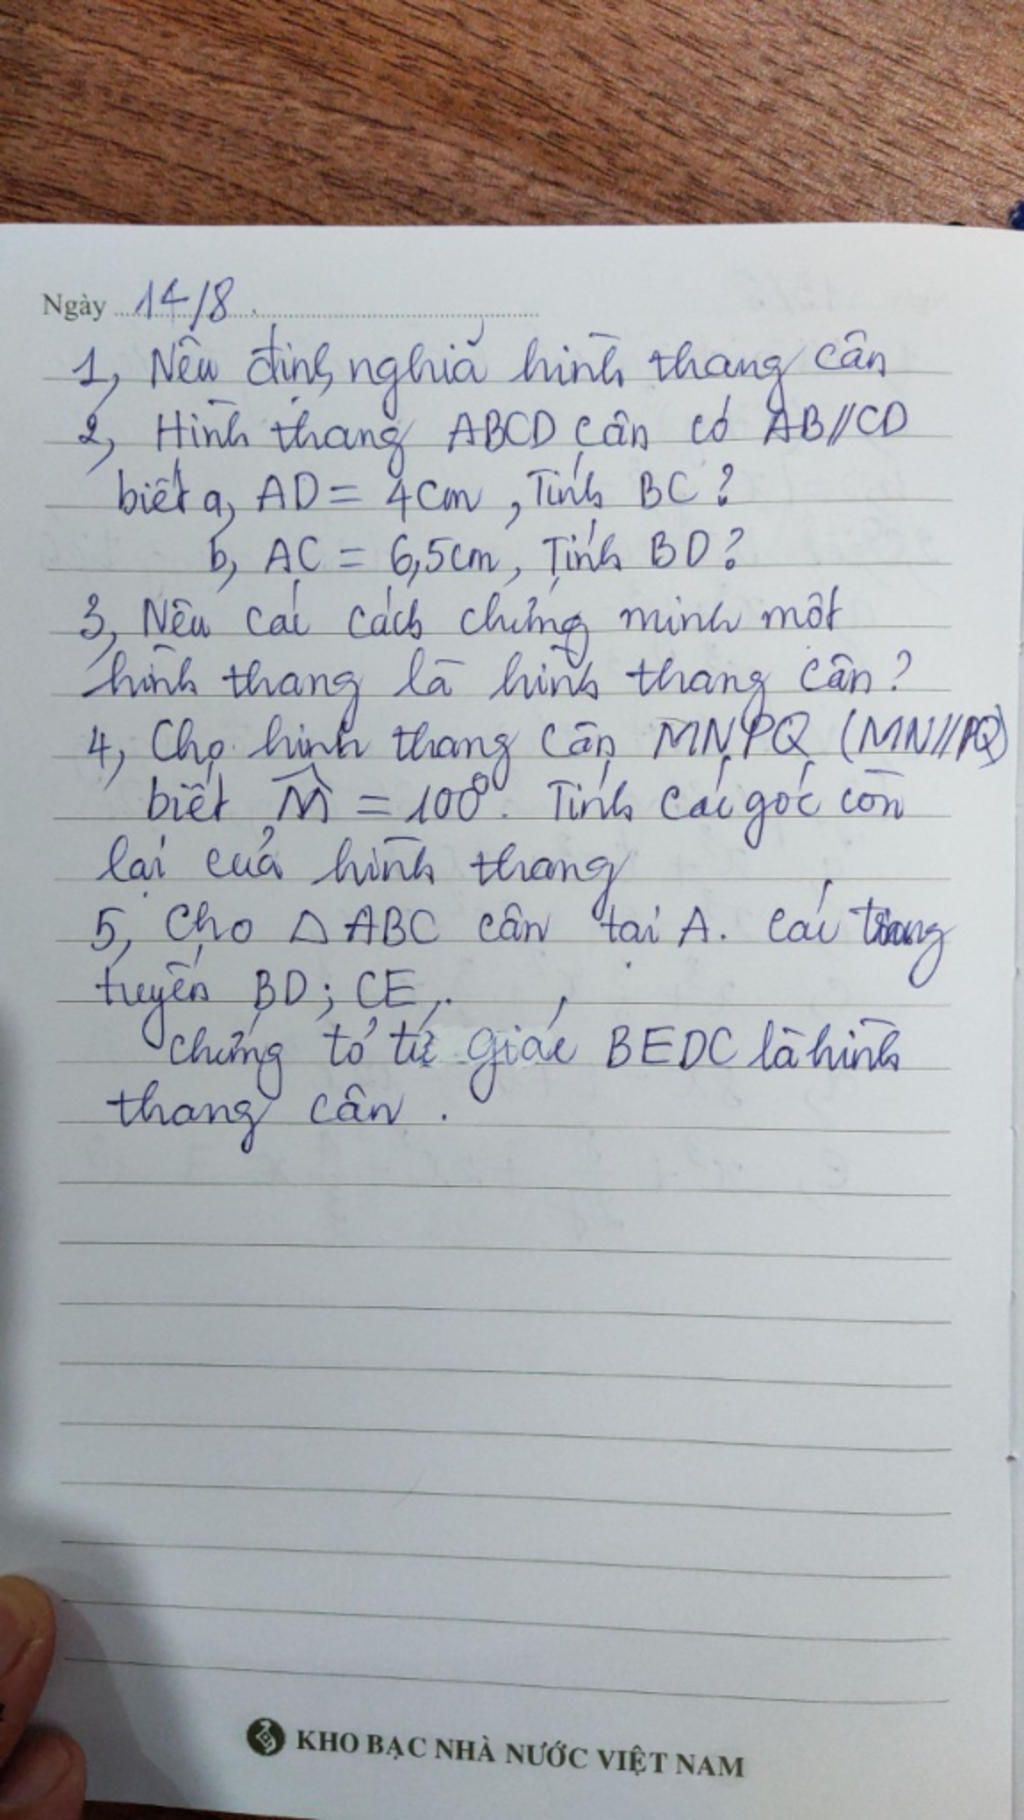 Ngày 14/8.
1, Nêu định nghĩa hình thang cân
2, Hình thang ABCD cân có AB//CD
biết a, AD = 4cm, Tính BC?
b, AC = 6,5cm, Tính BD?
3, Nêu các cách chứng minh một
hình thang là hình thang cân?
4, Cho hình thang cân MNPQ (MN//PQ)
biết M̂ = 100⁰. Tính các góc còn
lại của hình thang
5, Cho △ ABC cân tại A. Các trung
tuyến BD; CE,.
Chứng tỏ tứ giác BEDC là hình
thang cân.
KHO BẠC NHÀ NƯỚC VIỆT NAM